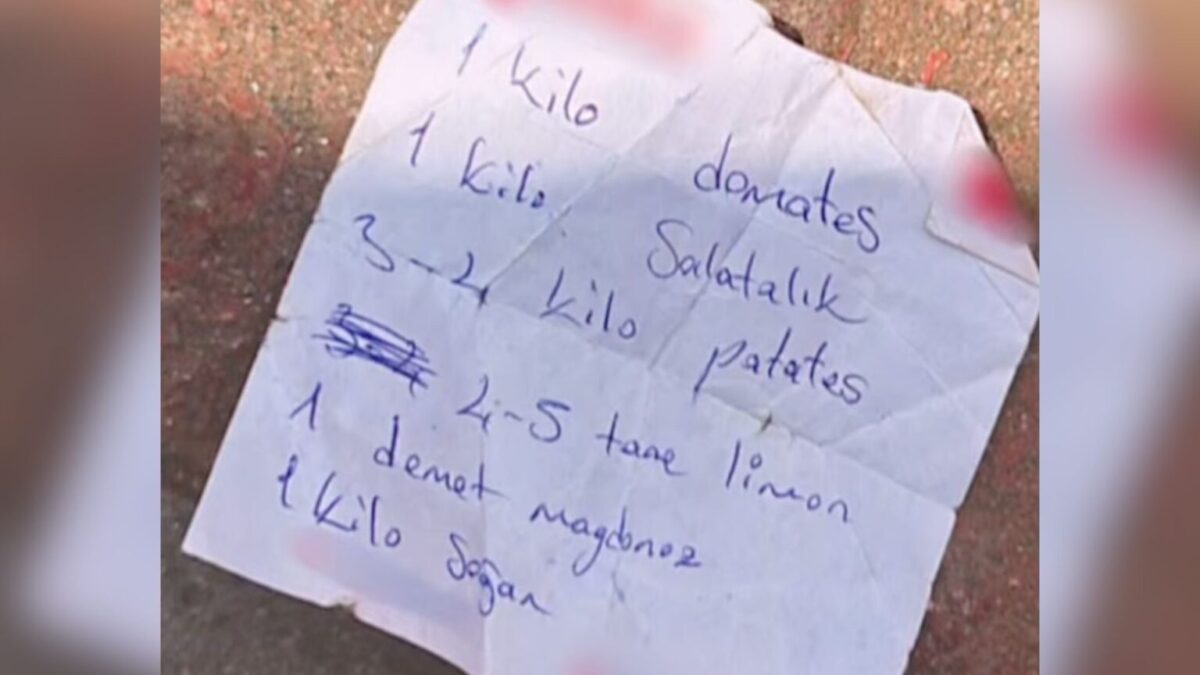 1 kilo domates
1 kilo Salatalık
3-4 kilo patates
4-5 tane limon
1 demet magdonoz
1 kilo Soğan